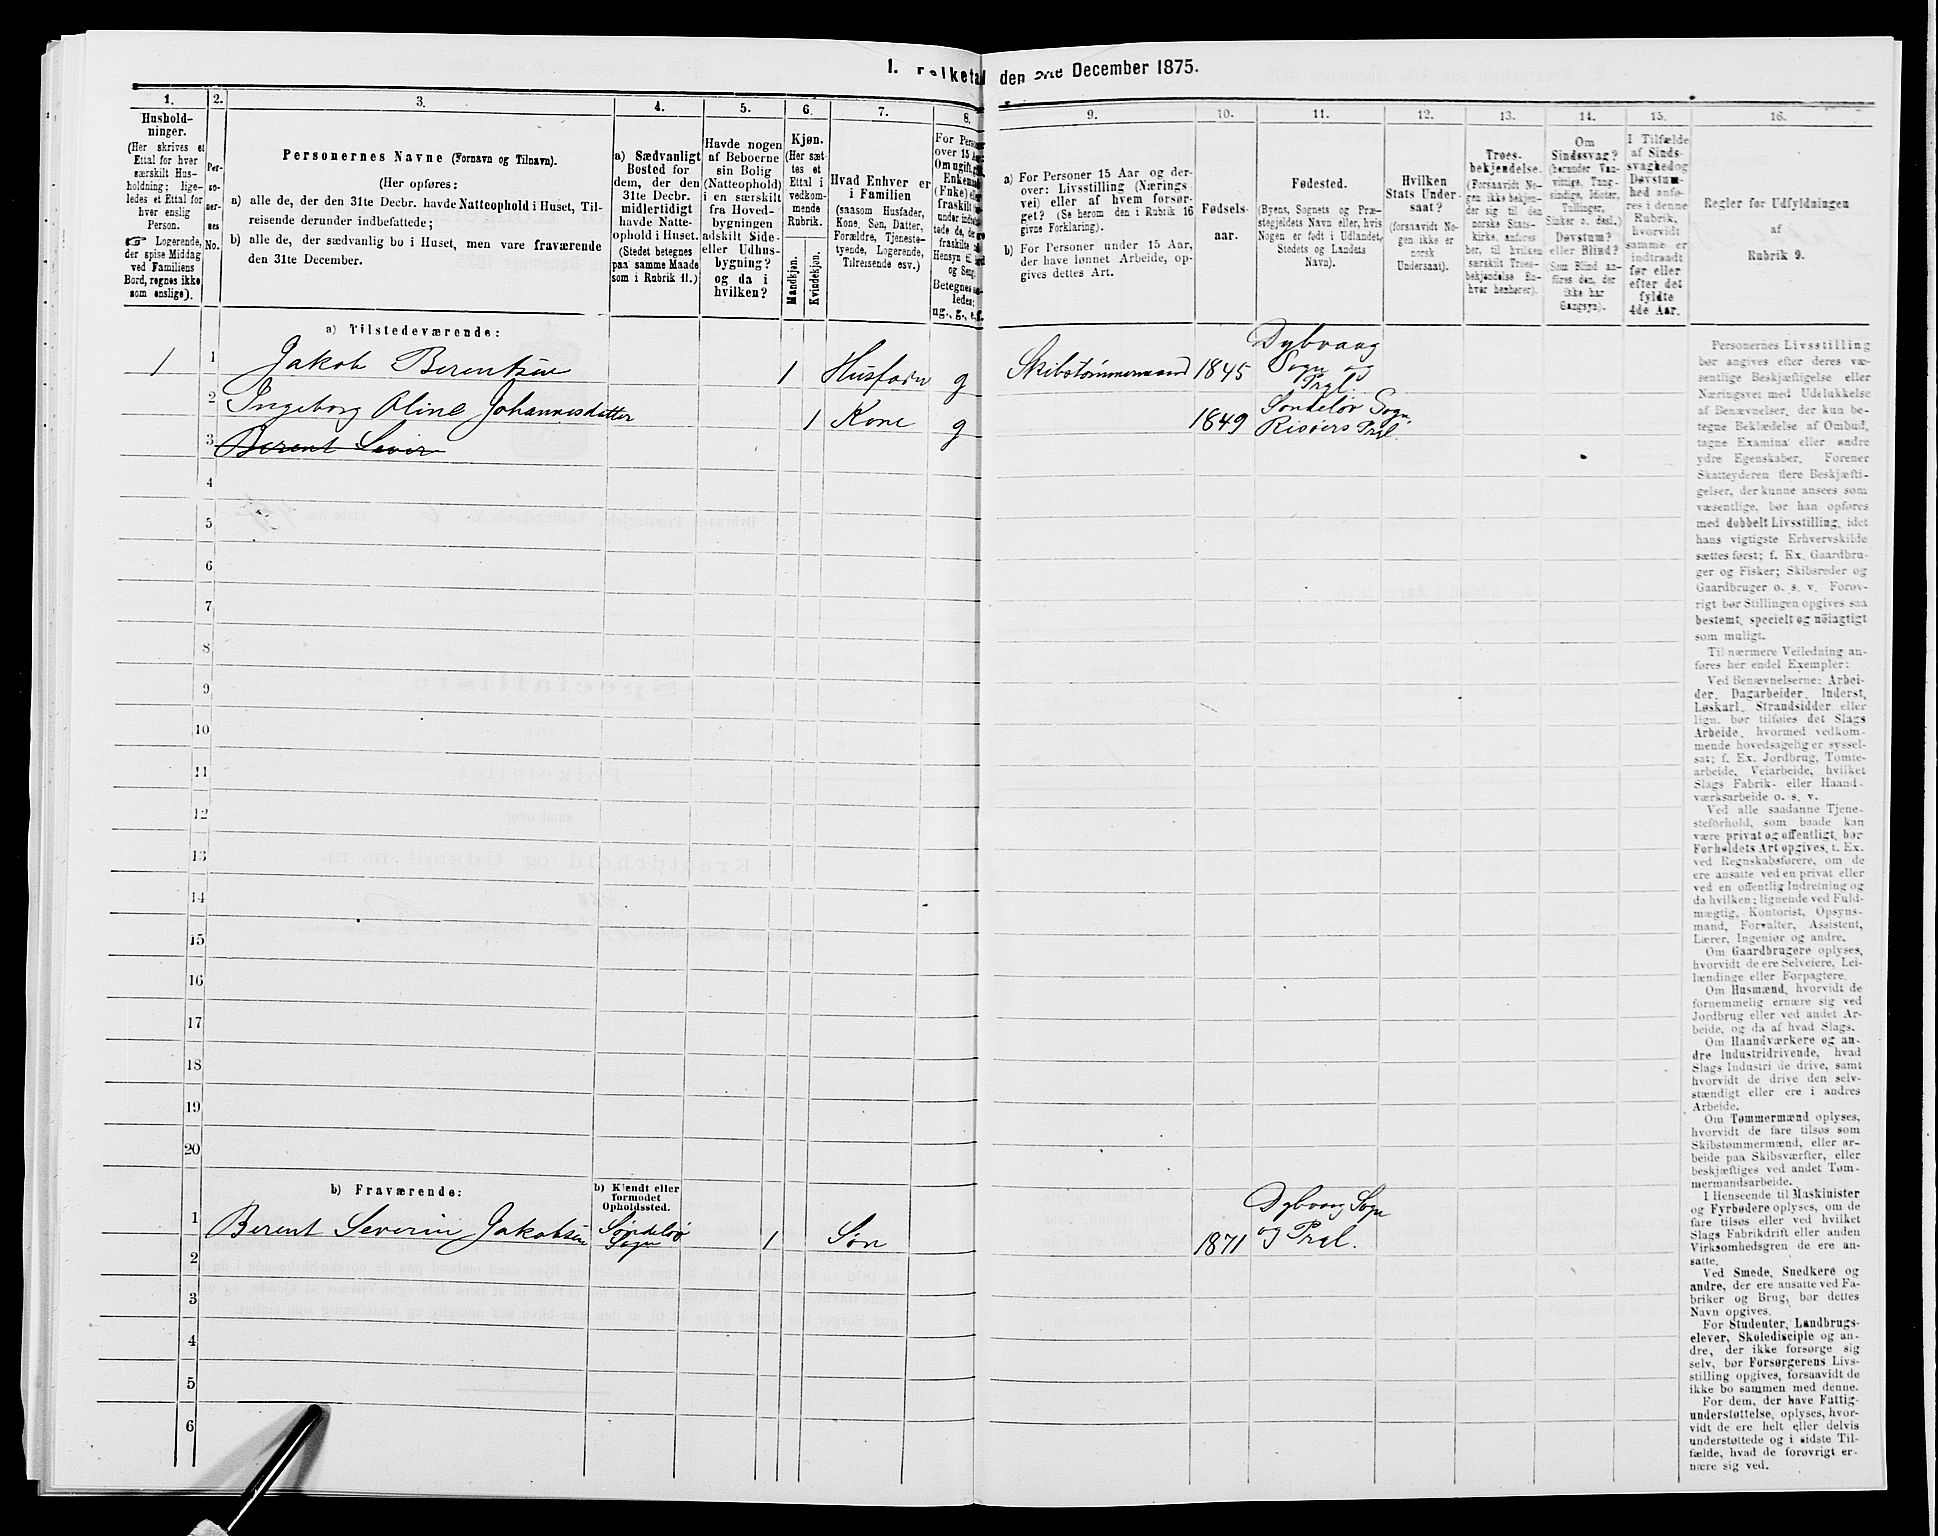 1. Folketal den 31te December 1875.
1.
Hushold-
ninger.
(Her skrives et
Ettal for hver
særskilt Hus-
holdning; lige-
ledes et Ettal for
hver enslig
Person.
☞ Logerende,
der spise Middag
ved Familiens
Bord, regnes ikke
som enslige).
2.
Per-
so-
ner-
nes
No.
3.
Personernes Navne (Fornavn og Tilnavn).
(Her opføres:
a) alle de, der den 31te Decbr. havde Natteophold i Huset, Til-
reisende derunder indbefattede;
b) alle de, der sædvanlig bo i Huset, men vare fraværende
den 31te December.
4.
a) Sædvanligt
Bosted for
dem, der den
31te Decbr.
midlertidigt
havde Natte-
ophold i Huset.
(Stedet betegnes
paa samme Maade
som i Rubrik 11.)
5.
Havde nogen
af Beboerne
sin Bolig
(Natteophold)
i en særskilt
fra Hoved-
bygningen
adskilt Side-
eller Udhus-
bygning?
og da i
hvilken?
6.
Kjøn.
(Her sæt-
tes et
Ettal i
vedkom-
mende
Rubrik.
Mandkjøn.
Kvindekjøn.
7.
Hvad Enhver er
i Familien
(saasom Husfader,
Kone, Søn, Datter,
Forældre, Tjeneste-
tyende, Logerende,
Tilreisende osv.)
8.
For Perso
over 15 Aar
Om ugift, g
Enkema
(Enke) el
fraskilt
under indb
tede de, de
fraskilte
Hensyn til
og Seng.
Betegnes
ledes:
ug., g., e., f.
9.
a) For Personer 15 Aar og der-
over: Livsstilling (Nærings-
vei) eller af hvem forsør-
get? (Se herom den i Rubrik 16
givne Forklaring).
b) For Personer under 15 Aar,
der have lønnet Arbeide, op-
gives dettes Art.
10.
Fødsels-
aar.
11.
Fødested.
(Byens, Sognets og Præ-
stegjeldets Navn eller, hvis
Nogen er født i Udlandet,
Stedets og Landets
Navn).
12.
Hvilken
Stats Under-
saat?
(forsaavidt No-
gen ikke er
norsk
Undersaat).
13.
Troes-
bekjendelse.
(Forsaavidt No-
gen ikke bekjen-
der sig til den
norske Stats-
kirke, anføres
her, til hvilken
særskilt Troes-
bekjendelse En-
hver henhører).
14.
Om
Sindssvag?
(herunder Van-
vittige, Tung-
sindige, Idioter,
Tullinger,
Sinker o. desl.)
Døvstum?
eller Blind?
(Som Blind an-
føres den, der
ikke har
Gangsyn).
15.
I Tilfælde
af Sinds-
svaghed og
Døvstum-
hed anfø-
res i denne
Rubrik,
hvorvidt
samme er
indtraadt
før eller
efter det
fyldte
4de Aar.
16.
Regler for Udfyldningen
af
Rubrik 9.
a) Tilstedeværende:
1 1 Jakob Berentsen 1 Husfader g Skibstømmermand 1845 Dybvaag
Sogn og
Prgl.
2 Ingeborg Oline Johannesdatter 1 Kone g 1849 Søndeløv Sogn
Risøers Prgl.
3 Berent Sever
4
5
6
7
8
9
10
11
12
13
14
15
16
17
18
19
20
b) Fraværende:
b) Kjendt eller
formodet
Opholdssted.
1 Berent Severin Jakobsen Søndeløv
Sogn 1 Søn 1871 Dybvaag Sogn
og Prgl.
2
3
4
5
6
Personernes Livsstilling
bør angives efter deres væ-
sentlige Beskjæftigelse eller
Næringsvei med Udelukkelse
af Benævnelser, der kun be-
tegne Beklædelse af Ombud,
tagne Examina eller andre
ydre Egenskaber. Forener
Skatteyderen flere Beskjæfti-
gelser, der kunne ansees som
væsentlige, bør han opføres
med dobbelt Livsstilling, idet
hans vigtigste Erhvervskilde
sættes først; f. Ex. Gaardbru-
ger og Fisker; Skibsreder og
Gaardbruger o. s. v. Forøv-
rigt bør Stillingen opgives saa
bestemt, specielt og nöiagtigt
som muligt.
Til nærmere Veiledning an-
føres her endel Exempler:
Ved Benævnelserne: Arbei-
der, Dagarbeider, Inderst,
Løskarl, Strandsidder eller
lign. bør tilføies det Slags
Arbeide, hvormed vedkom-
mende hovedsagelig er syssel-
sat; f. Ex. Jordbrug, Tomte-
arbeide, Veiarbeide, hvilket
Slags Fabrik- eller Haand-
værksarbeide o. s. v.
Ved alle saadanne Tjene-
steforhold, som baade kan
være privat og offentligt, bør
Forholdets Art opgives, f. Ex.
ved Regnskabsførere, om de
ere ansatte ved en privat eller
ved en offentlig Indretning og
da hvilken; lignende ved Fuld-
mægtig, Kontorist, Opsyns-
mand, Forvalter, Assistent,
Lærer, Ingeniør og andre.
Om Gaardbrugere oplyses,
hvorvidt de ere Selveiere, Lei-
lændinge eller Forpagtere.
Om Husmænd, hvorvidt de
fornemmelig ernære sig ved
Jordbrug eller ved andet Ar-
beide, og da af hvad Slags.
Om Haandværkere og an-
dre Industridrivende, hvad
Slags Industri de drive, samt
hvorvidt de drive den selv-
stændigt eller ere i andres
Arbeide.
Om Tømmermænd oplyses,
hvorvidt de fare tilsøs som
Skibstømmermænd, eller ar-
beide paa Skibsværfter, eller
beskjæftiges ved andet Tøm-
mermandsarbeide.
I Henseende til Maskinister
og Fyrbødere oplyses, om de
fare tilsøs eller ved hvilket
Slags Fabrikdrift eller anden
Virksomhedsgren de ere an-
satte.
Ved Smede, Snedkere og
andre, der ere ansatte ved Fa-
briker og Brug, bør dettes
Navn opgives.
For Studenter, Landbrugs-
elever, Skoledisciple og an-
dre, der ikke forsørge sig
selv, bør Forsørgerens Livs-
stilling opgives, forsaavidt de
ikke bo sammen med denne.
For dem, der have Fattig-
understøttelse, oplyses, hvor-
vidt de ere helt eller delvis
understøttede og i sidste Til-
fælde, hvad de forøvrigt er-
nære sig ved.